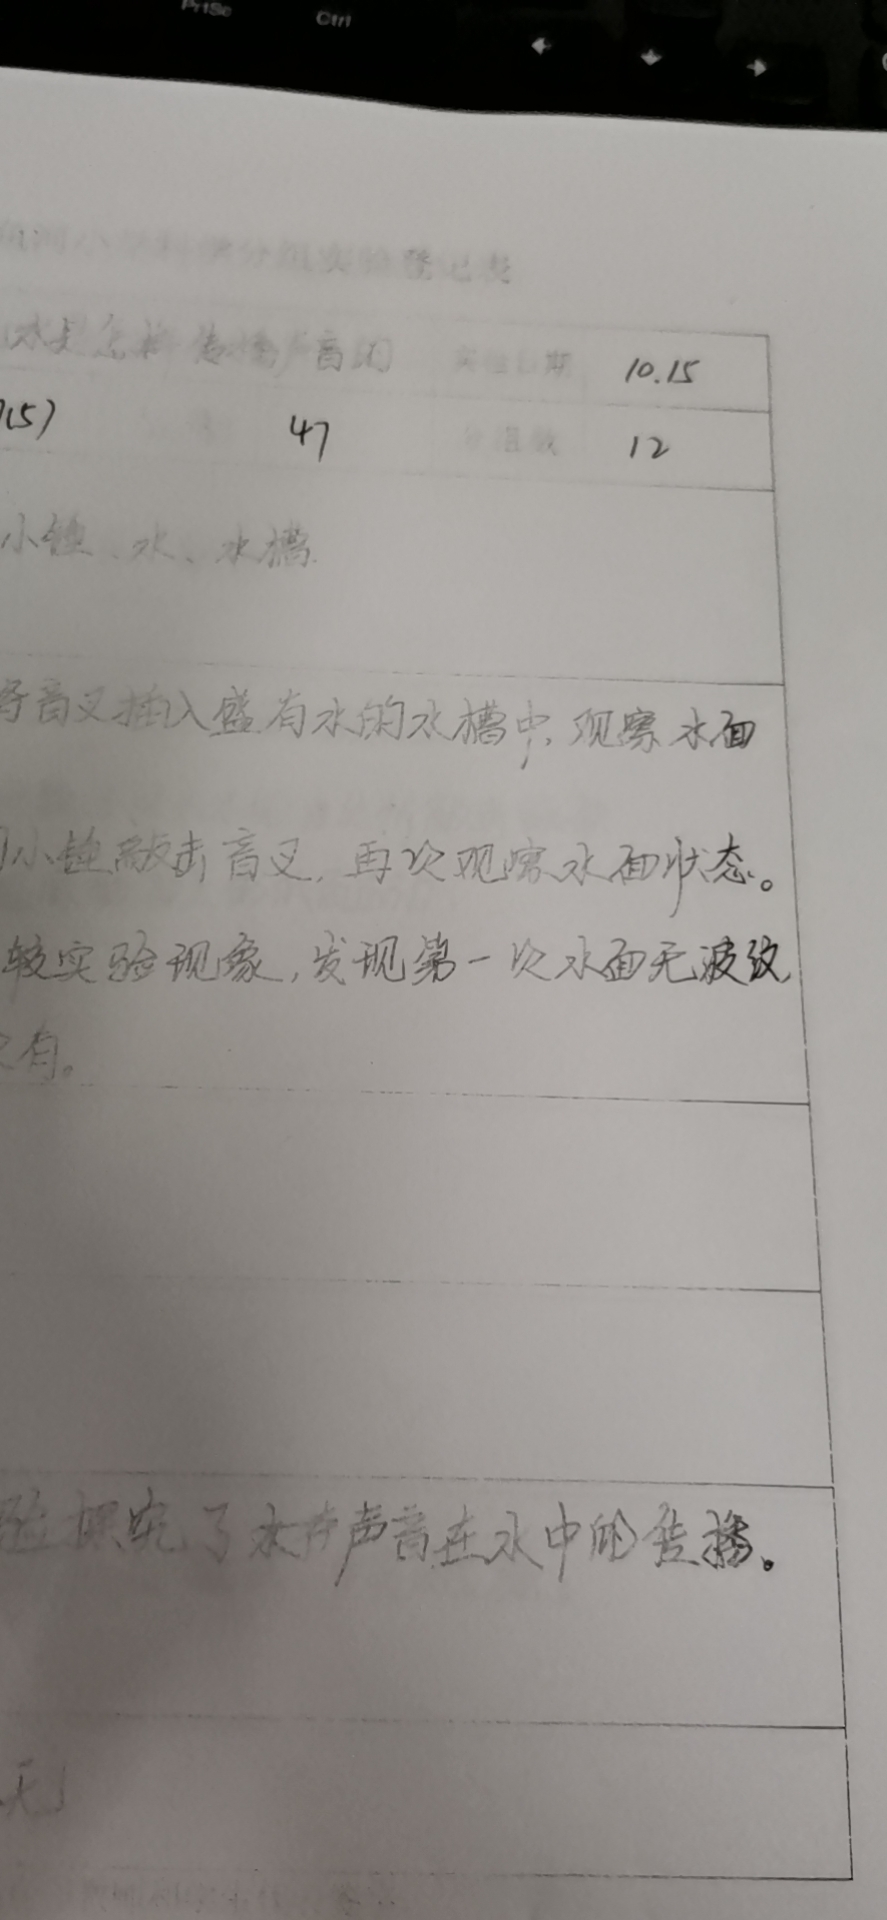 PrtSc Ctrl
小学科学分组实验登记表
水是怎样传播声音的 实验日期 10.15
(5) 47 分组数 12
小锤、水、水槽
音叉插入盛有水的水槽中,观察水面
小锤敲击音叉,再次观察水面状态。
较实验现象,发现第一次水面无波纹
有。
验探究了水在声音在水中的传播。
无